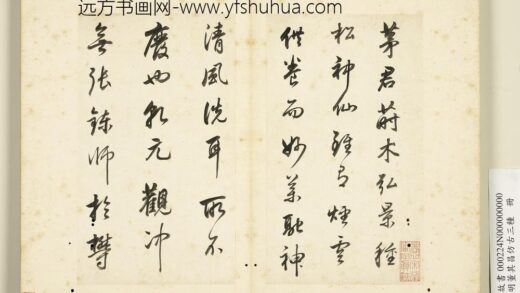 远方书画网-www.yfshuhua.com
茅君蒔木弘景種
松神仙雖有煙雲
供養而妙 神
清風洗耳所不
廢也乾元觀沖
無張鍊師於欝
故書 000224N000000000
明董其昌仿古三種 冊